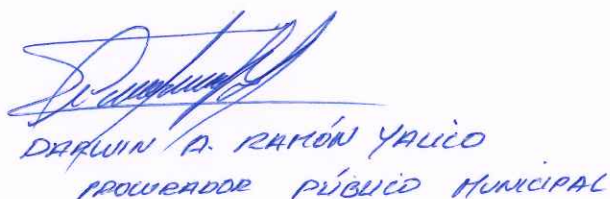 DARWIN A. RAMÓN YALICO
PROCURADOR PÚBLICO MUNICIPAL